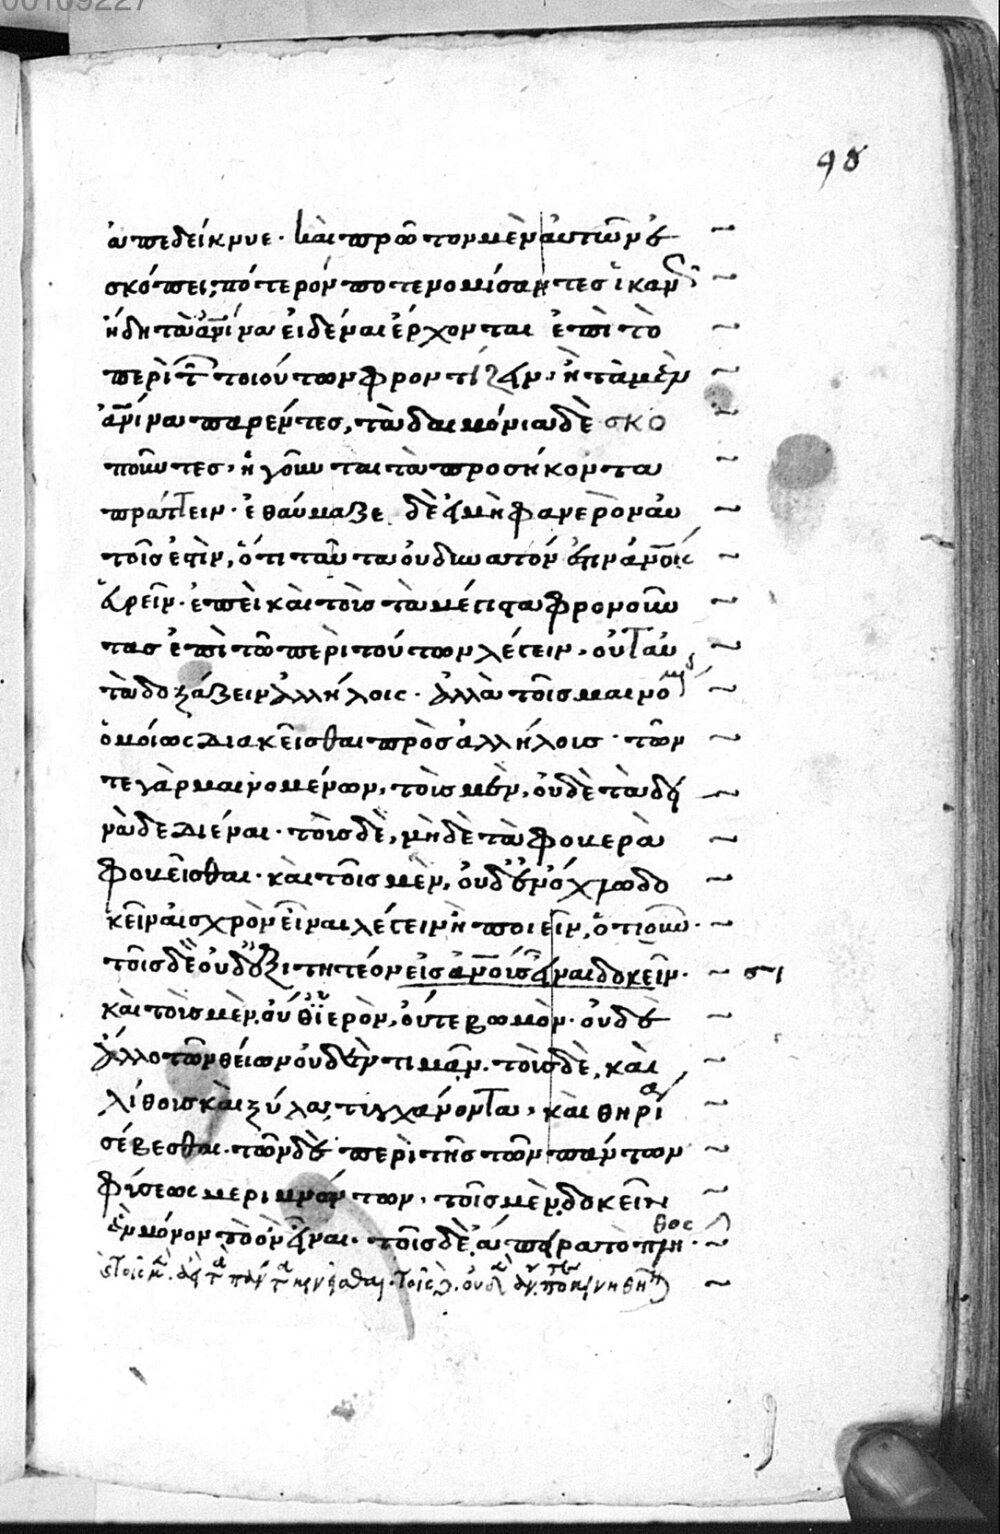 00109227
98
ἀπεδείκνυε· καὶ πρῶτον μὲν αὐτῶν ἐ
σκόπει, πότερόν ποτε νομίσαντες ἱκανῶς
ἤδη τἀνθρώπινα εἰδέναι ἔρχονται ἐπὶ τὸ
περὶ τῶν τοιούτων φροντίζειν· ἢ τὰ μὲν
ἀνθρώπινα παρέντες, τὰ δαιμόνια δὲ σκο
ποῦντες, ἡγοῦνται τὰ προσήκοντα
πράττειν· ἐθαύμαζε δὲ εἰ μὴ φανερὸν αὐ
τοῖς ἐστὶν, ὅτι ταῦτα οὐ δυνατόν ἐστιν ἀνθρώποις
εὑρεῖν· ἐπεὶ καὶ τοὺς τὰ μέγιστα φρονοῦν
τας ἐπὶ τῶ περὶ τούτων λέγειν, οὐ ταὐ
τὰ δοξάζειν ἀλλήλοις· ἀλλὰ τοῖς μαινομένοις
ὁμοίως διακεῖσθαι πρὸς ἀλλήλους· τῶν
τε γὰρ μαινομένων, τοὺς μὲν, οὐδὲ τὰ δει
νὰ δεδιέναι· τοὺς δὲ, μηδὲ τὰ φοβερὰ
φοβεῖσθαι· καὶ τοῖς μὲν, οὐδ' ἐν ὄχλω δο
κεῖν αἰσχρὸν εἶναι λέγειν ἢ ποιεῖν, ὁτιοῦν·
τοῖς δὲ οὐδ' ἐξιτητέον εἰς ἀνθρώπους εἶναι δοκεῖν·
καὶ τοὺς μὲν οὔθ' ἱερὸν, οὔτε βωμὸν· οὐδ' ἐ
ἄλλο τῶν θείων οὐδὲν τιμᾶν· τοὺς δὲ, καὶ
λίθους καὶ ξύλα τυγχάνοντα, καὶ θηρία
σέβεσθαι· τῶν δὲ περὶ τῆς τῶν πάντων
φύσεως μεριμνώντων, τοῖς μὲν δοκεῖν
ἓν μόνον τὸ ὂν εἶναι· τοῖς δὲ, ἄπειρα τὸ πλῆθος·